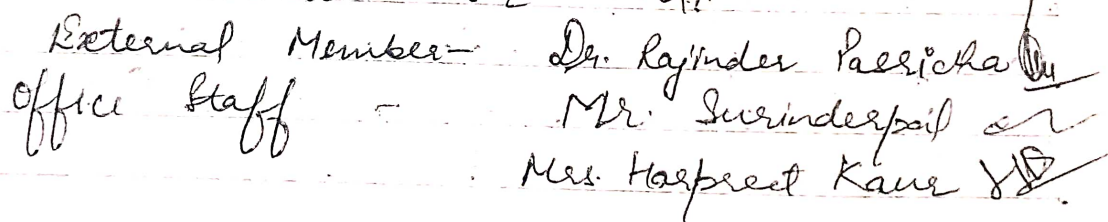 External Member - Dr. Rajinder Pasricha
Office Staff - Mr. Surinderpal
Mrs. Harpreet Kaur